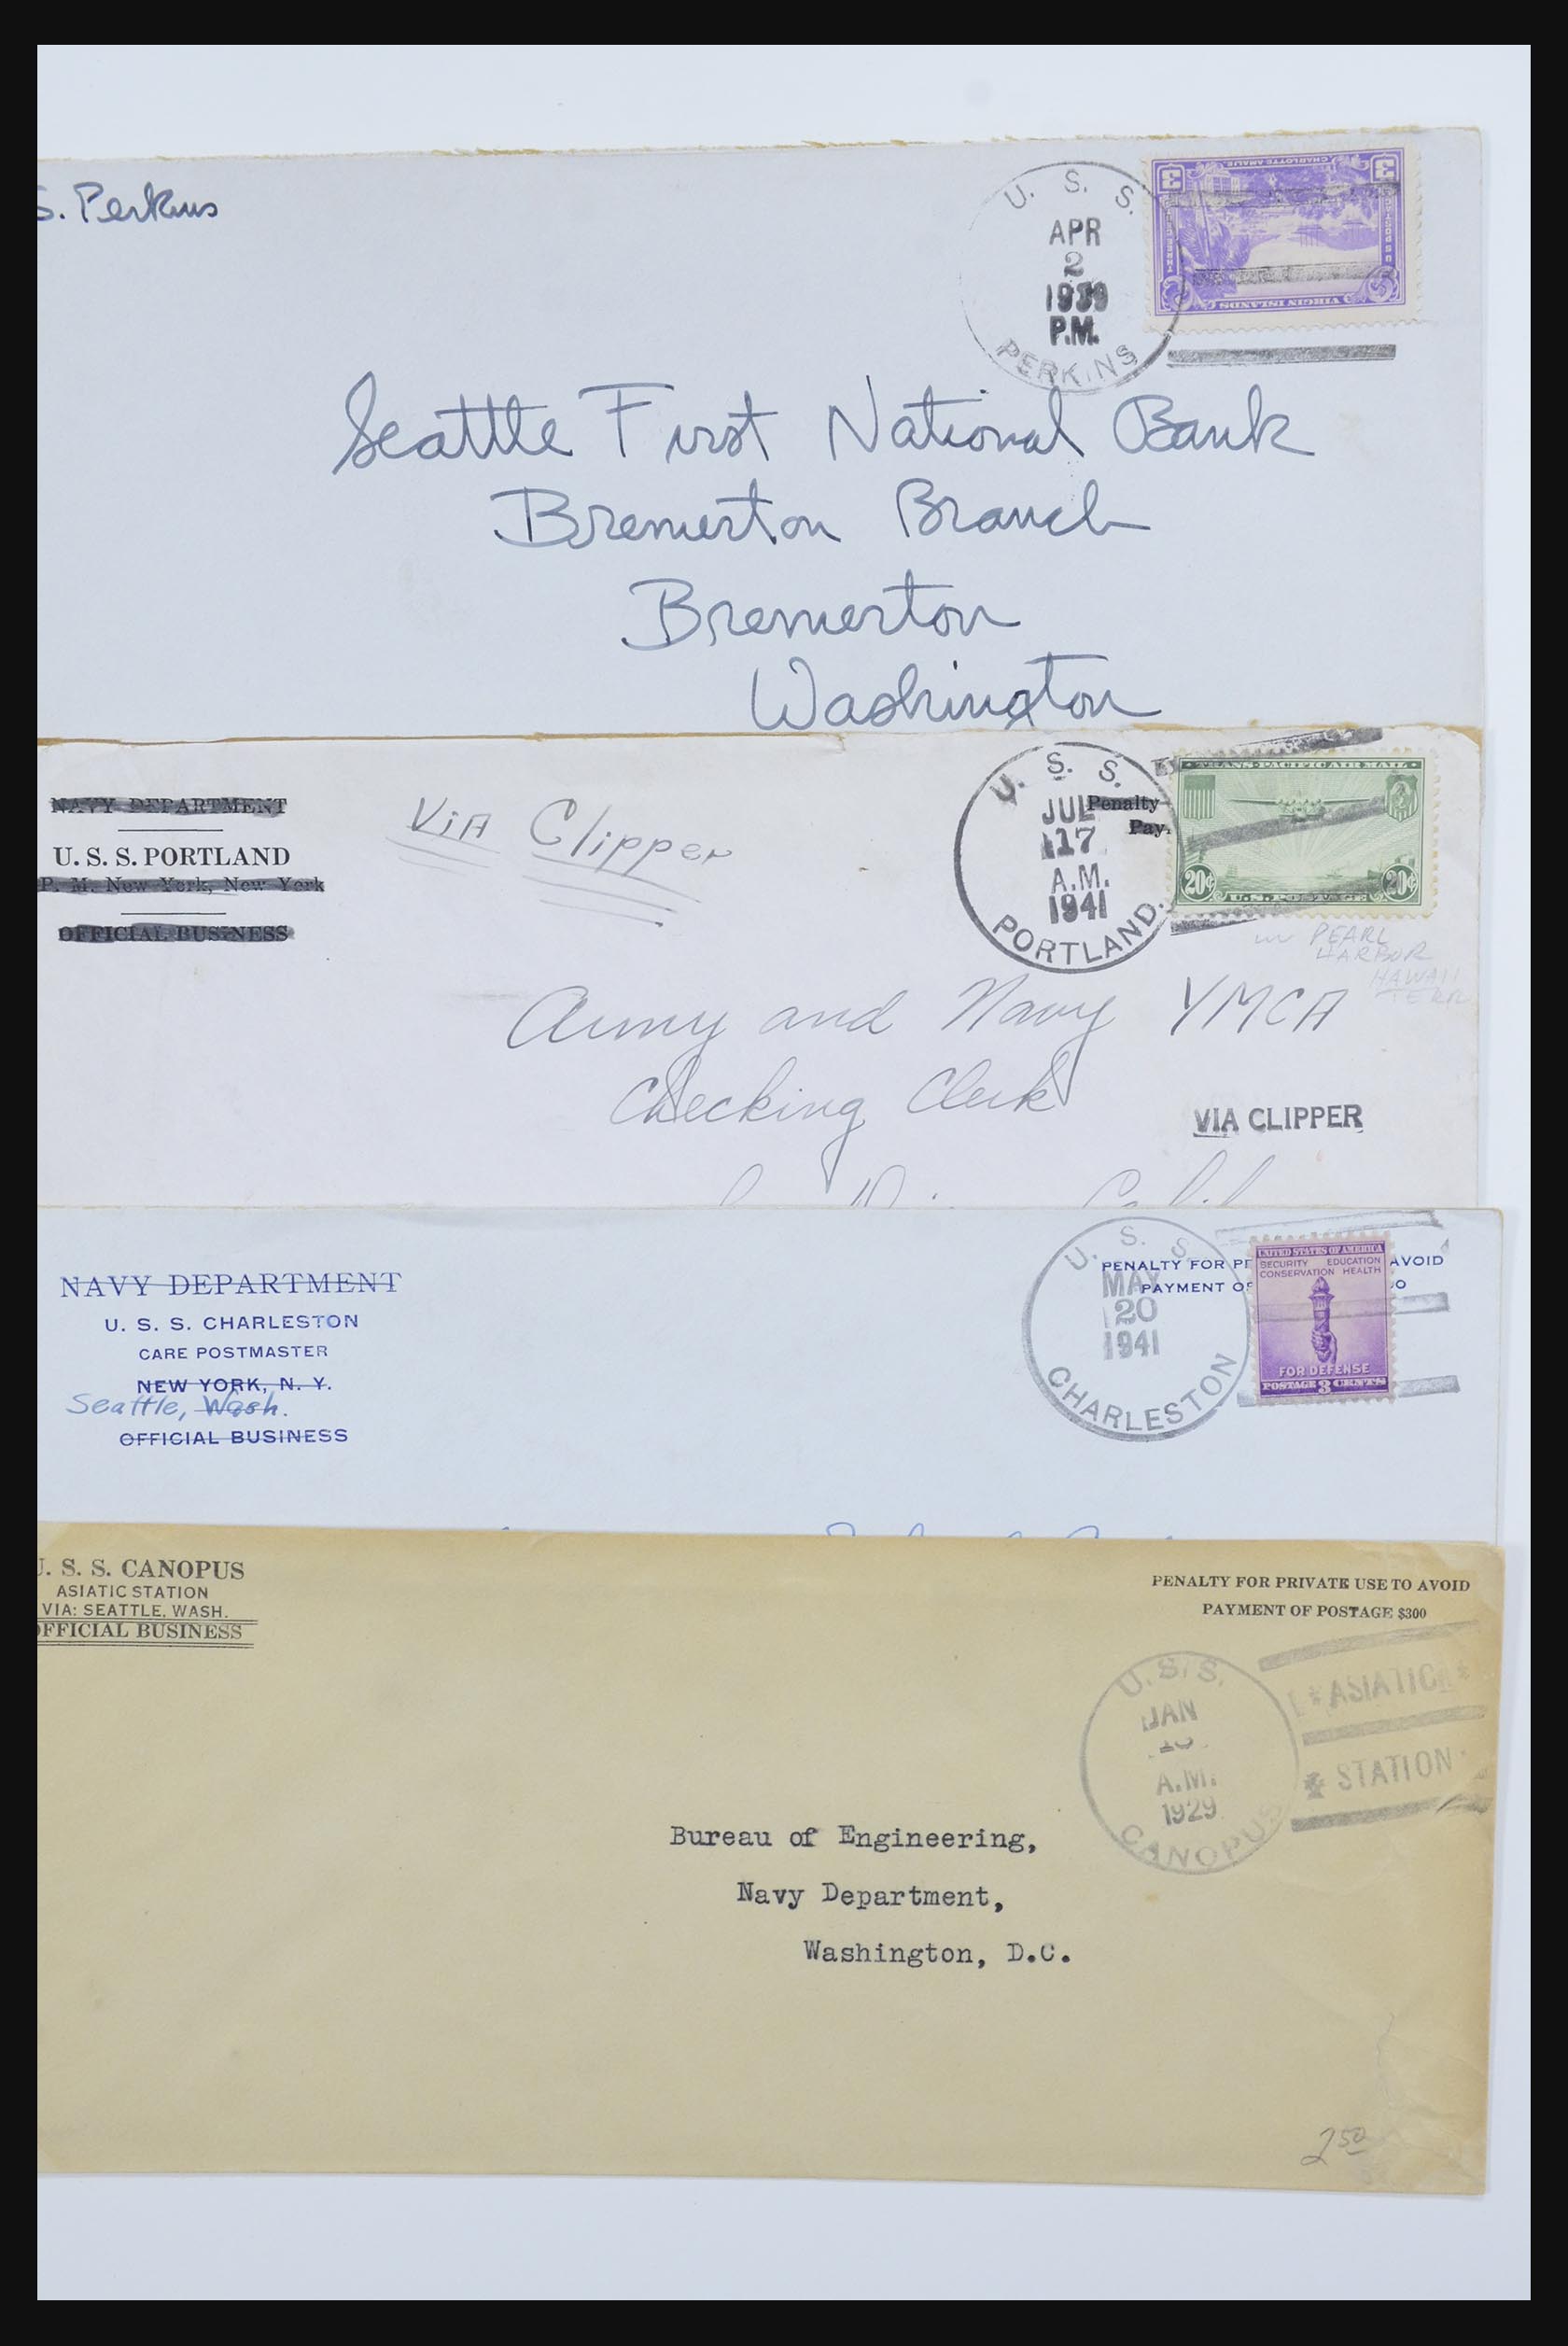 S. Perkins
U. S. S.
APR
2
1939
P.M.
PERKINS
3 CHARLOTTE AMALIE 3
VIRGIN ISLANDS
Seattle First National Bank
Bremerton Branch
Bremerton
Washington
NAVY DEPARTMENT
U. S. S. PORTLAND
P. M. New York, New York
OFFICIAL BUSINESS
Via Clipper
U. S. S.
JUL
17
A.M.
1941
PORTLAND.
Penalty
Pay
TRANS-PACIFIC AIR MAIL
20¢ U.S. POSTAGE 20¢
PEARL
HARBOR
HAWAII
TERR
Army and Navy YMCA
Checking Clerk
VIA CLIPPER
NAVY DEPARTMENT
U. S. S. CHARLESTON
CARE POSTMASTER
NEW YORK, N. Y.
Seattle, Wash.
OFFICIAL BUSINESS
U. S. S.
MAY
20
1941
CHARLESTON
PENALTY FOR PR AVOID
PAYMENT OF
UNITED STATES OF AMERICA
SECURITY EDUCATION
CONSERVATION HEALTH
FOR DEFENSE
POSTAGE 3 CENTS
U. S. S. CANOPUS
ASIATIC STATION
VIA: SEATTLE, WASH.
OFFICIAL BUSINESS
PENALTY FOR PRIVATE USE TO AVOID
PAYMENT OF POSTAGE $300
U.S.S.
JAN
A.M.
1929
CANOPUS
*ASIATIC*
* STATION
Bureau of Engineering,
Navy Department,
Washington, D.C.
2 50